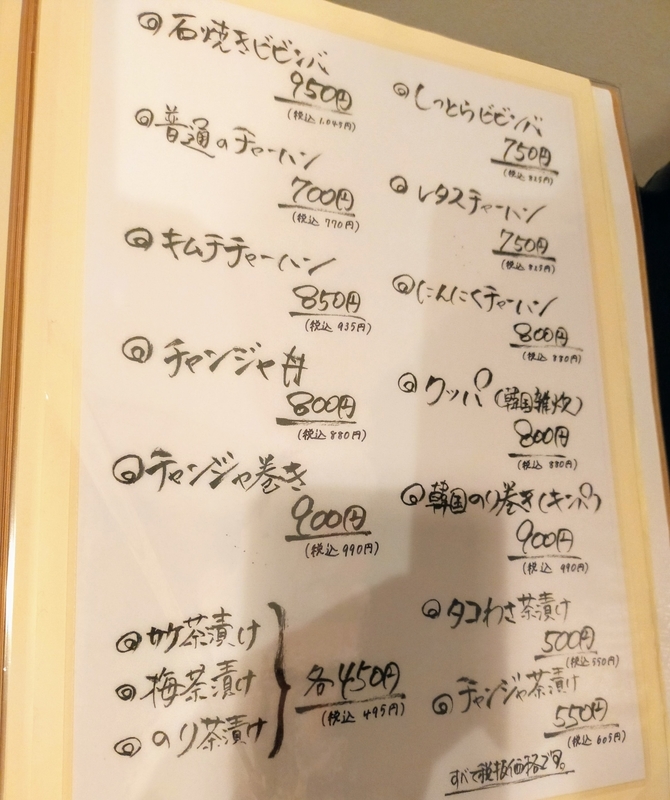 ◎石焼きビビンバ
950円
(税込 1,045円)
◎普通のチャーハン
700円
(税込 770円)
◎キムチチャーハン
850円
(税込 935円)
◎チャンジャ丼
800円
(税込 880円)
◎チャンジャ巻き
900円
(税込 990円)
◎サケ茶漬け
◎梅茶漬け
◎のり茶漬け
各450円
(税込 495円)
◎しっとらビビンバ
750円
(税込 825円)
◎レタスチャーハン
750円
(税込 825円)
◎にんにくチャーハン
800円
(税込 880円)
◎クッパ(韓国雑炊)
800円
(税込 880円)
◎韓国のり巻き(キンパ)
900円
(税込 990円)
◎タコわさ茶漬け
500円
(税込 550円)
◎チャンジャ茶漬け
550円
(税込 605円)
すべて税抜価格です。